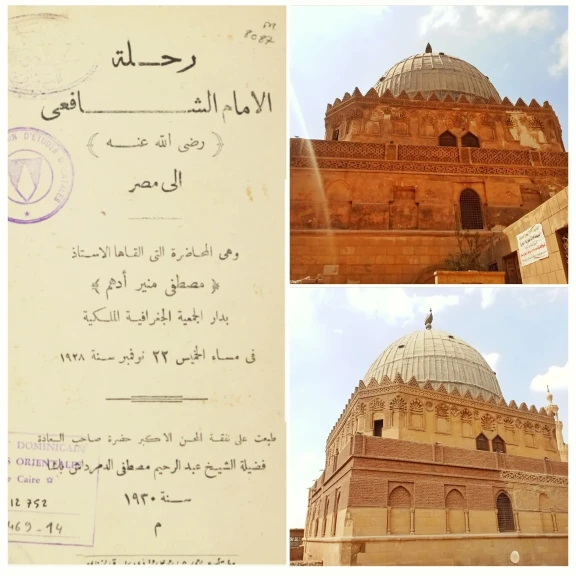 رحلة
الامام الشافعى
( رضى الله عنه )
الى مصر
وهى المحاضرة التى القاها الاستاذ
« مصطفى منير أدهم »
بدار الجمعية الجغرافية الملكية
فى مساء الخميس ٢٢ نوفمبر سنة ١٩٢٨
طبعت على نفقة المحسن الاكبر حضرة صاحب السعادة
فضيلة الشيخ عبد الرحيم مصطفى الدمرداش باشا
سنة ١٩٣٠
م
DOMINICAIN
ORIENTALES
Caire
12 752
469-14